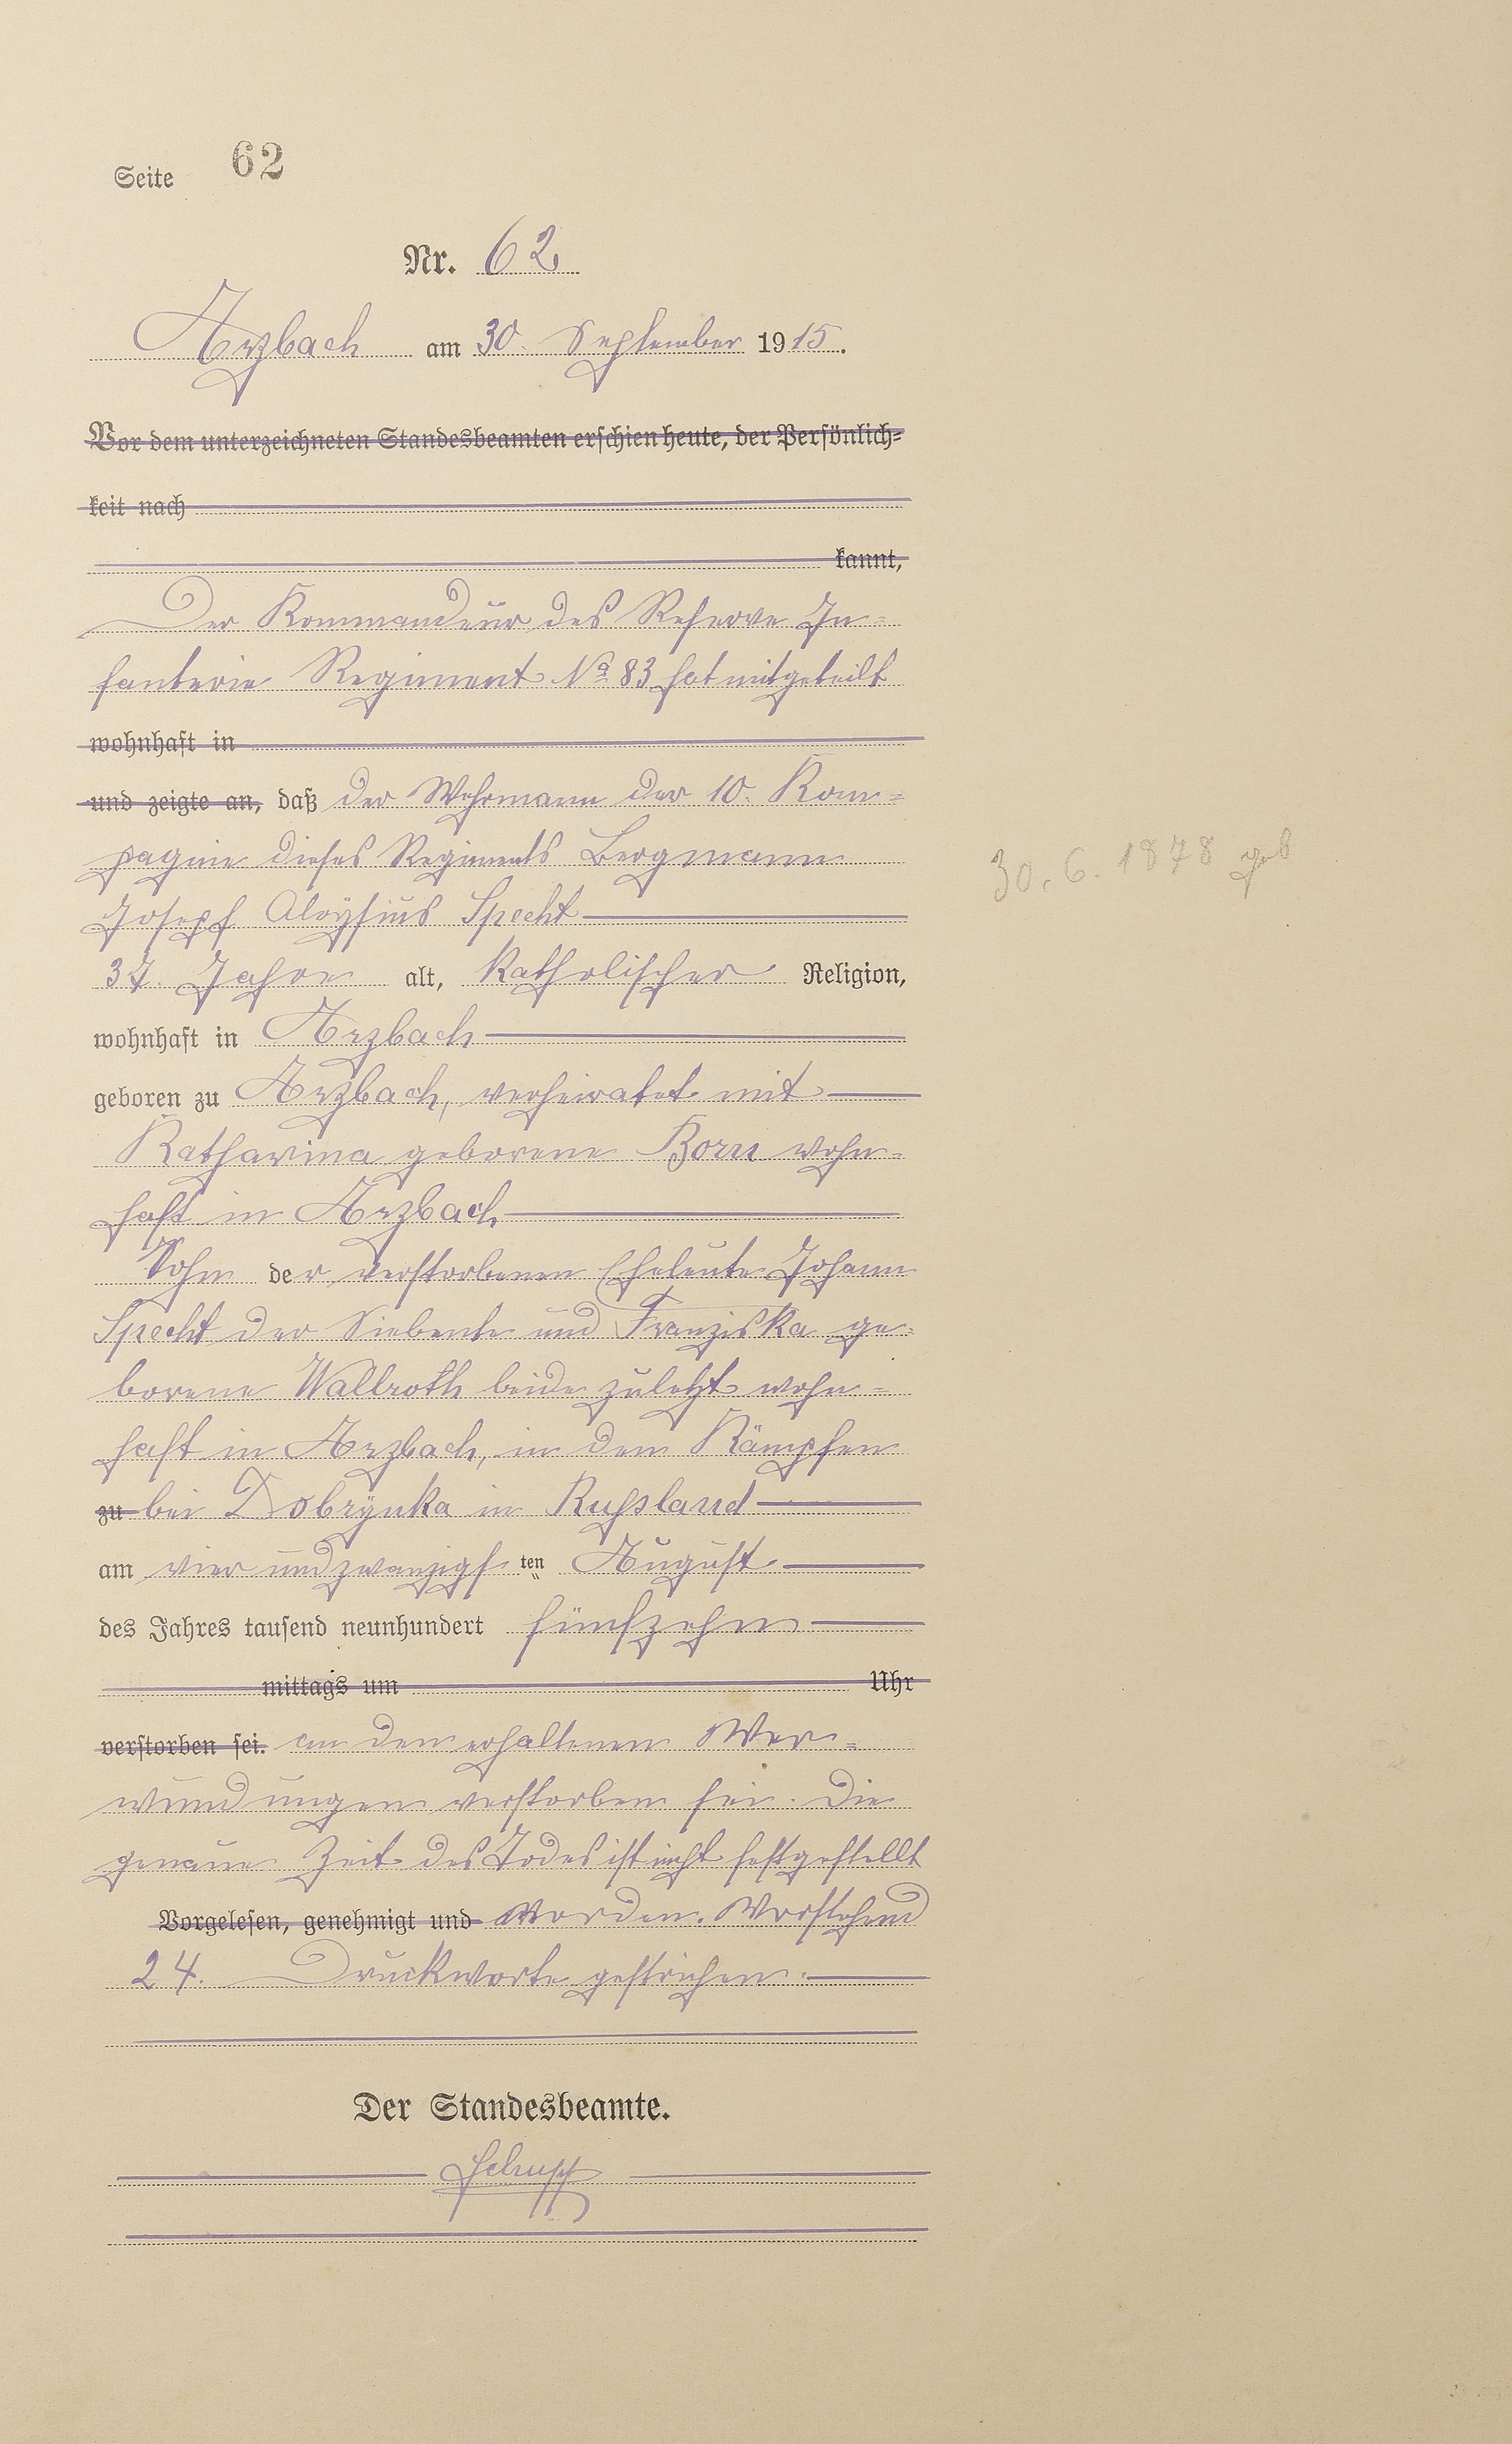 Seite 62
Nr. 62
Arzbach am 30. September 1915.
Vor dem unterzeichneten Standesbeamten erschien heute, der Persönlich=
keit nach
kannt,
Der Kommandeur des Reserve In=
fanterie Regiment No 83 hat mitgeteilt
wohnhaft in
und zeigte an, daß der Wehrmann der 10. Kom=
pagnie dieses Regiments Bergmann
30.6.1878 geb
Josef Aloysius Specht
37. Jahre alt, katholischer Religion,
wohnhaft in Arzbach
geboren zu Arzbach, verheiratet mit
Katharina geborene Born wohn=
haft in Arzbach
Sohn der verstorbenen Eheleute Johann
Specht der Siebente und Franziska ge=
borene Wallroth beide zuletzt wohn=
haft in Arzbach, in den Kämpfen
zu bei Dobrynka in Russland
am vier und zwanzigsten August
des Jahres tausend neunhundert fünfzehn
mittags um Uhr
verstorben sei. an den erhaltenen Ver=
wundungen verstorben sei. Die
genaue Zeit des Todes ist nicht festgestellt
Vorgelesen, genehmigt und worden. Vorstehend
24. Druckworte gestrichen.
Der Standesbeamte.